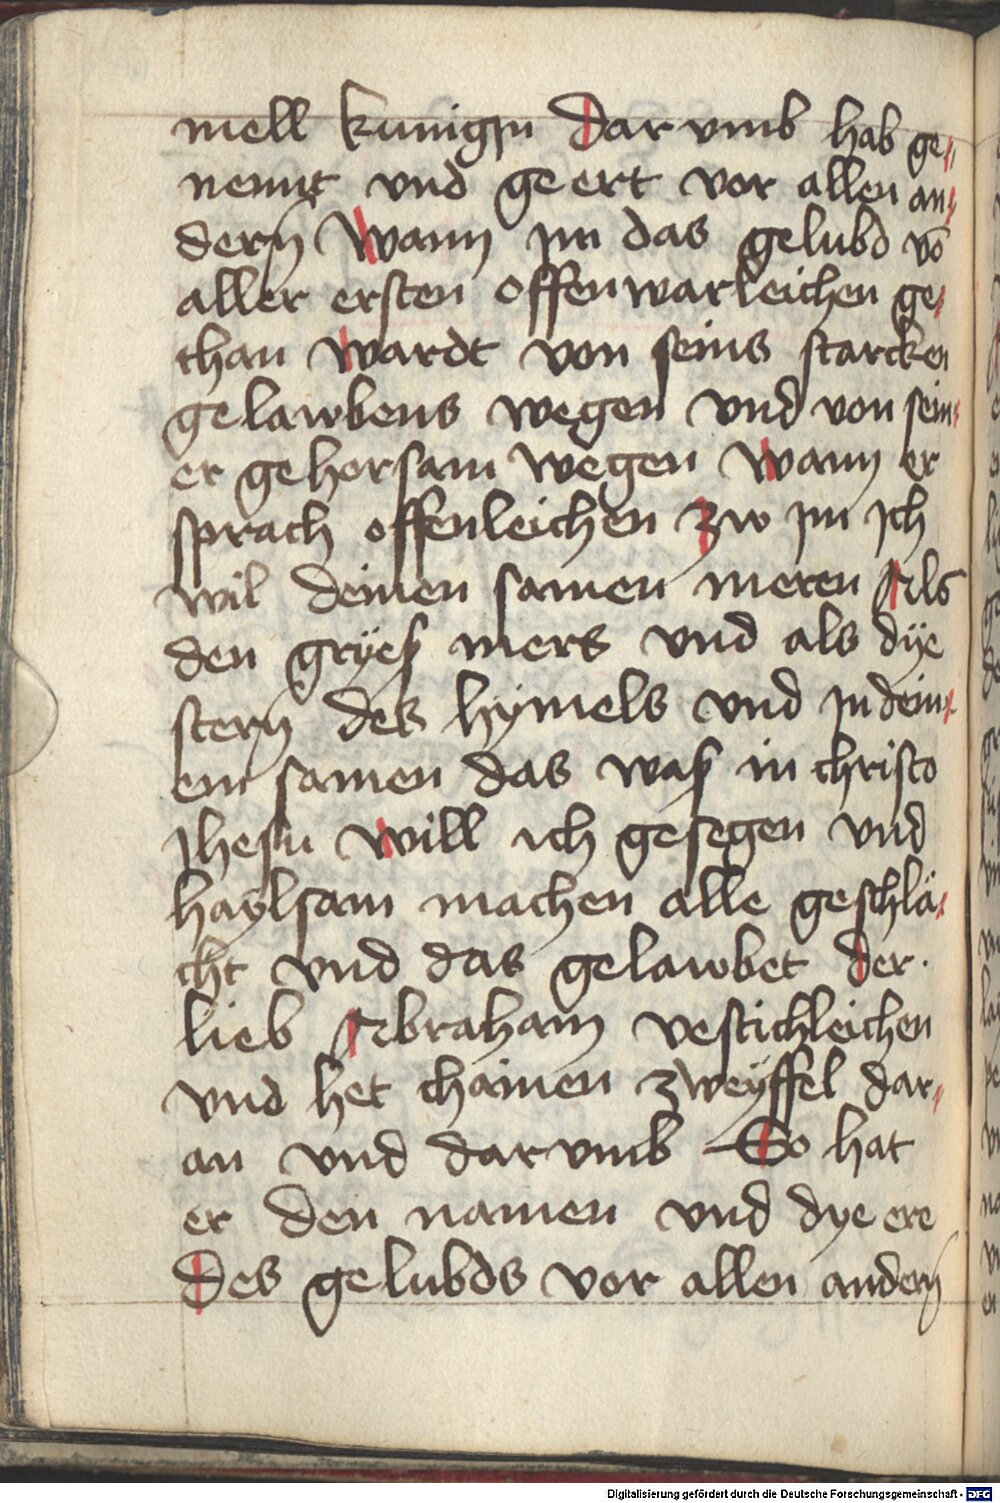 mell kunigin Dar vmb hab ge⸗
nennt vnd geert vor allen an⸗
dern Wann im das gelubd vō
aller ersten offenwarleichen ge⸗
than wardt von seins starcken
gelawbens wegen vnd von sein⸗
er gehorsam wegen Wann er
sprach offenleichen zw im Ich
wil deinen samen meren Als
den gryeß mers vnd als dÿe
stern des hÿmels vnd In dein⸗
em samen das waß in christo
Ihesu will ich gesegen vnd
haylsam machen alle geschlä⸗
cht vnd das gelawbet der
lieb Abraham vestichleichen
vnd het chainen zweÿffel dar⸗
an vnd dar vmb So hat
er den namen vnd dye ere
Des gelubds vor allen andern
Digitalisierung gefördert durch die Deutsche Forschungsgemeinschaft - DFG